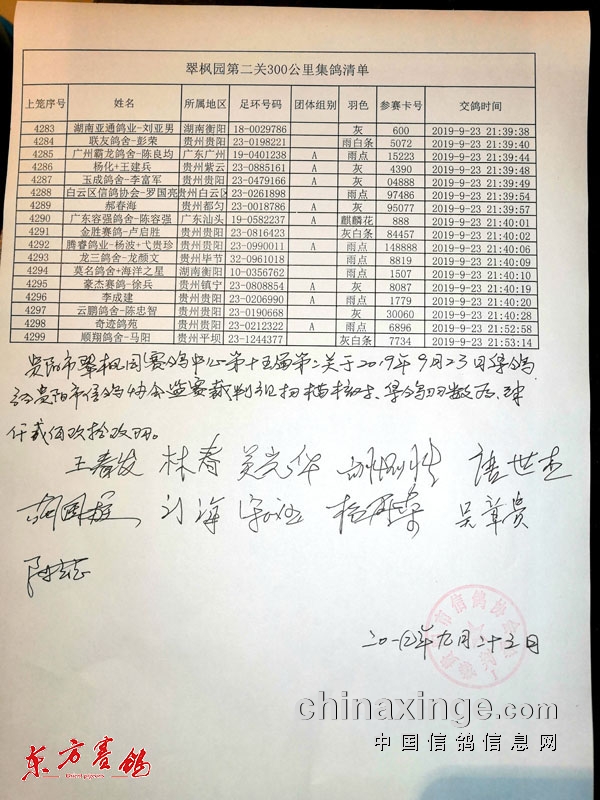 翠枫园第二关300公里集鸽清单
上笼序号 姓名 所属地区 足环号码 团体组别 羽色 参赛卡号 交鸽时间
4283 湖南亚通鸽业-刘亚男 湖南衡阳 18-0029786 灰 600 2019-9-23 21:39:38
4284 联友鸽舍-彭荣 贵州贵阳 23-0198221 雨白条 5072 2019-9-23 21:39:40
4285 广州霸龙鸽舍-陈良均 广东广州 19-0401238 A 雨点 15223 2019-9-23 21:39:44
4286 杨化+王建兵 贵州紫云 23-0885161 A 灰 4390 2019-9-23 21:39:48
4287 玉成鸽舍-李富军 贵州贵阳 23-0479166 A 灰 04888 2019-9-23 21:39:49
4288 白云区信鸽协会-罗国亮 贵州白云区 23-0261898 雨点 97486 2019-9-23 21:39:54
4289 郝春海 贵州都匀 23-0018786 A 灰 95077 2019-9-23 21:39:57
4290 广东容强鸽舍-陈容强 广东汕头 19-0582237 A 麒麟花 888 2019-9-23 21:40:01
4291 金胜赛鸽-卢启胜 贵州贵阳 23-0816423 灰白条 84457 2019-9-23 21:40:02
4292 腾睿鸽业-杨波+弋贵珍 贵州贵阳 23-0990011 A 雨点 148888 2019-9-23 21:40:06
4293 龙三鸽舍-龙颜文 贵州毕节 32-0961018 雨点 8819 2019-9-23 21:40:09
4294 莫名鸽舍+海洋之星 湖南衡阳 10-0356762 雨点 1507 2019-9-23 21:40:10
4295 豪杰赛鸽-徐兵 贵州镇宁 23-0808854 A 灰 8087 2019-9-23 21:40:19
4296 李成建 贵州贵阳 23-0206990 A 雨点 1779 2019-9-23 21:40:20
4297 云鹏鸽舍-陈忠智 贵州贵阳 23-0190668 灰 30060 2019-9-23 21:40:28
4298 奇迹鸽苑 贵州贵阳 23-0212322 A 雨点 6896 2019-9-23 21:52:58
4299 顺翔鸽舍-马阳 贵州平坝 23-1244377 灰白条 7734 2019-9-23 21:53:14
贵阳市翠枫园赛鸽中心第十五届第二关于2019年9月23日集鸽
贵阳市信鸽协会监赛裁判组扫描核对,集鸽羽数为:肆
仟贰佰玖拾玖羽。
王春发 林春 吴光华 唐世杰
刘海 吴章贵
二〇一九年九月二十三日
市信鸽协
chinaxinge.com
中国信鸽信息网
东方赛鸽